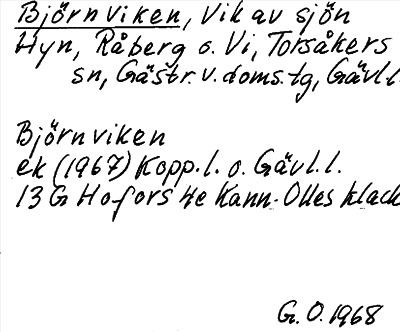 Björnviken, Vik av sjön
Hyn, Råberg o. Vi, Torsåkers
sn, Gästr. v. doms.tg, Gävl.l.
Björnviken
ek (1967) Kopp.l. o. Gävl.l.
13 G Hofors 4e Kann-Olles klack
G. O. 1968